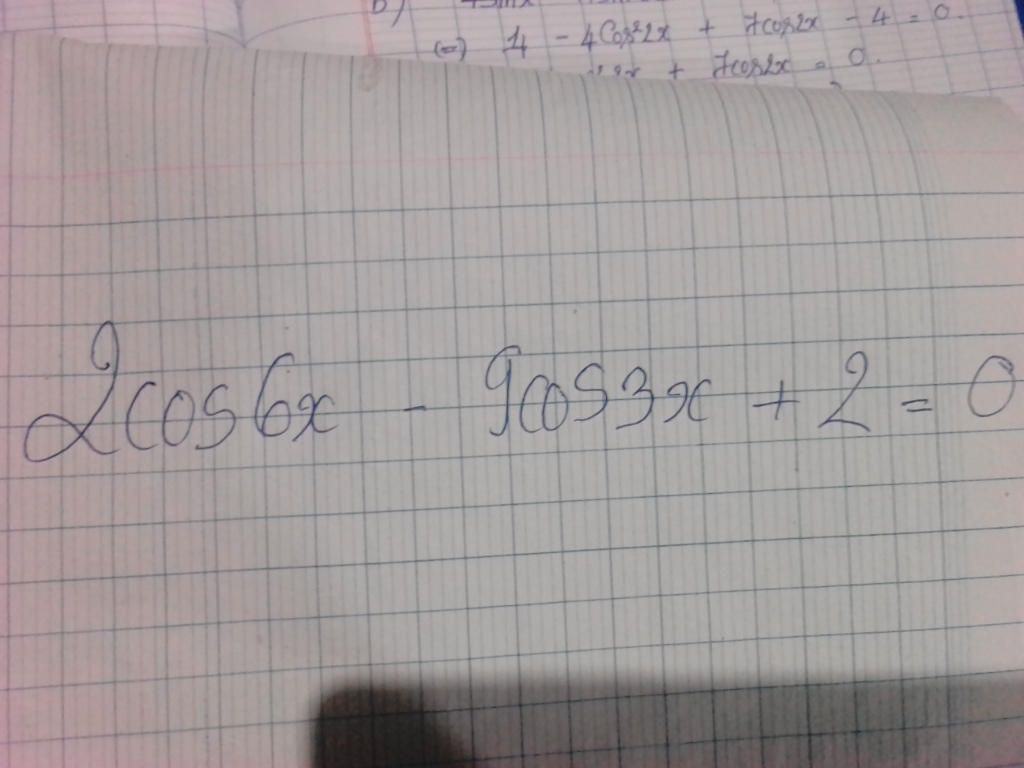 b)
(=) 4 - 4cos²2x + 7cos2x - 4 = 0.
+ 7cos2x = 0.
2cos6x - 9cos3x + 2 = 0